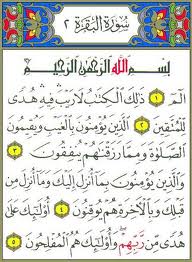 سُورَةُ البَقَرَةِ ٢
بِسْمِ اللَّهِ الرَّحْمَٰنِ الرَّحِيمِ
الٓمٓ ١ ذَٰلِكَ الْكِتَٰبُ لَا رَيْبَ فِيهِ هُدًى
لِّلْمُتَّقِينَ ٢ الَّذِينَ يُؤْمِنُونَ بِالْغَيْبِ وَيُقِيمُونَ
الصَّلَوٰةَ وَمِمَّا رَزَقْنَٰهُمْ يُنفِقُونَ ٣
وَالَّذِينَ يُؤْمِنُونَ بِمَا أُنزِلَ إِلَيْكَ وَمَا أُنزِلَ مِن
قَبْلِكَ وَبِالْآخِرَةِ هُمْ يُوقِنُونَ ٤ أُولَٰئِكَ عَلَىٰ
هُدًى مِّن رَّبِّهِمْ وَأُولَٰئِكَ هُمُ الْمُفْلِحُونَ ٥